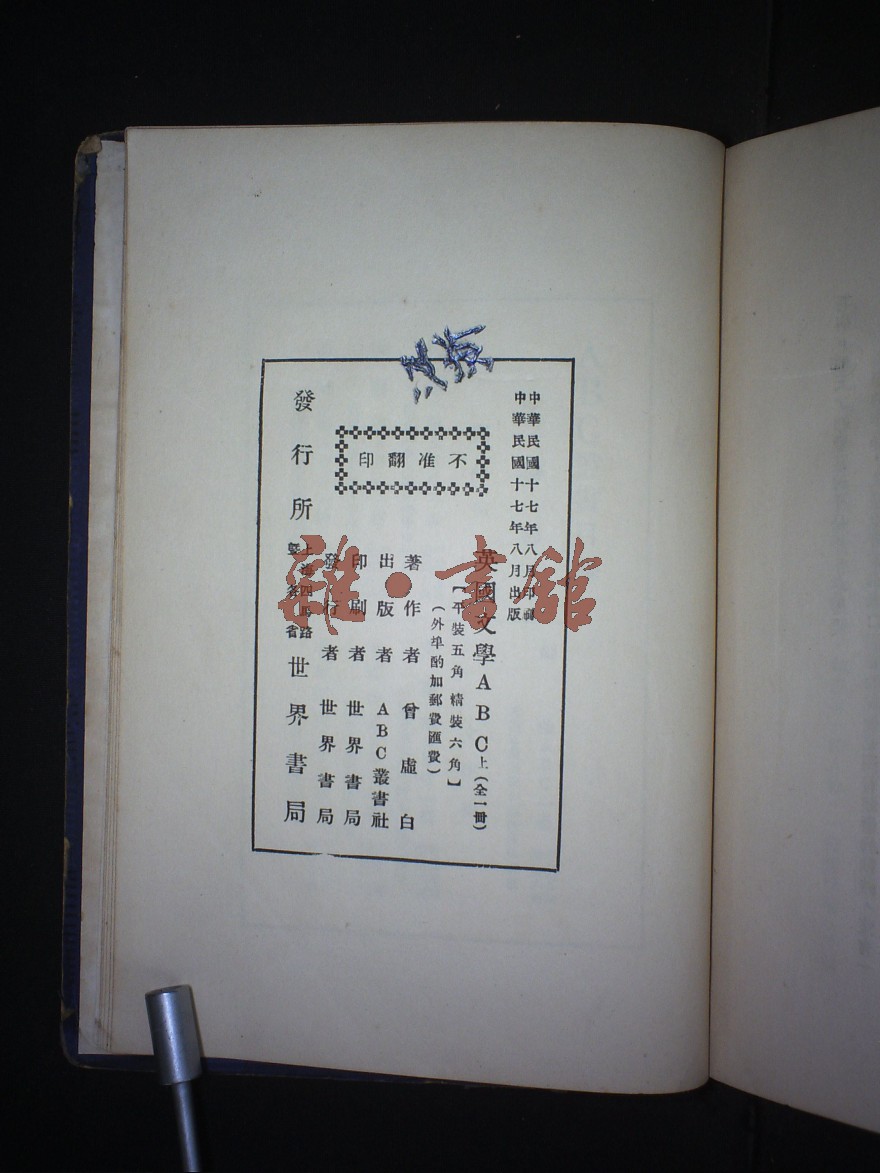 中華民國十七年八月印刷
中華民國十七年八月出版
英國文學ABC上(全一冊)
【平裝五角 精裝六角】
(外埠酌加郵費匯費)
不准翻印
著作者 曾虛白
出版者 ABC叢書社
印刷者 世界書局
發行者 世界書局
發行所 上海四馬路 暨各省 世界書局
雜·書館